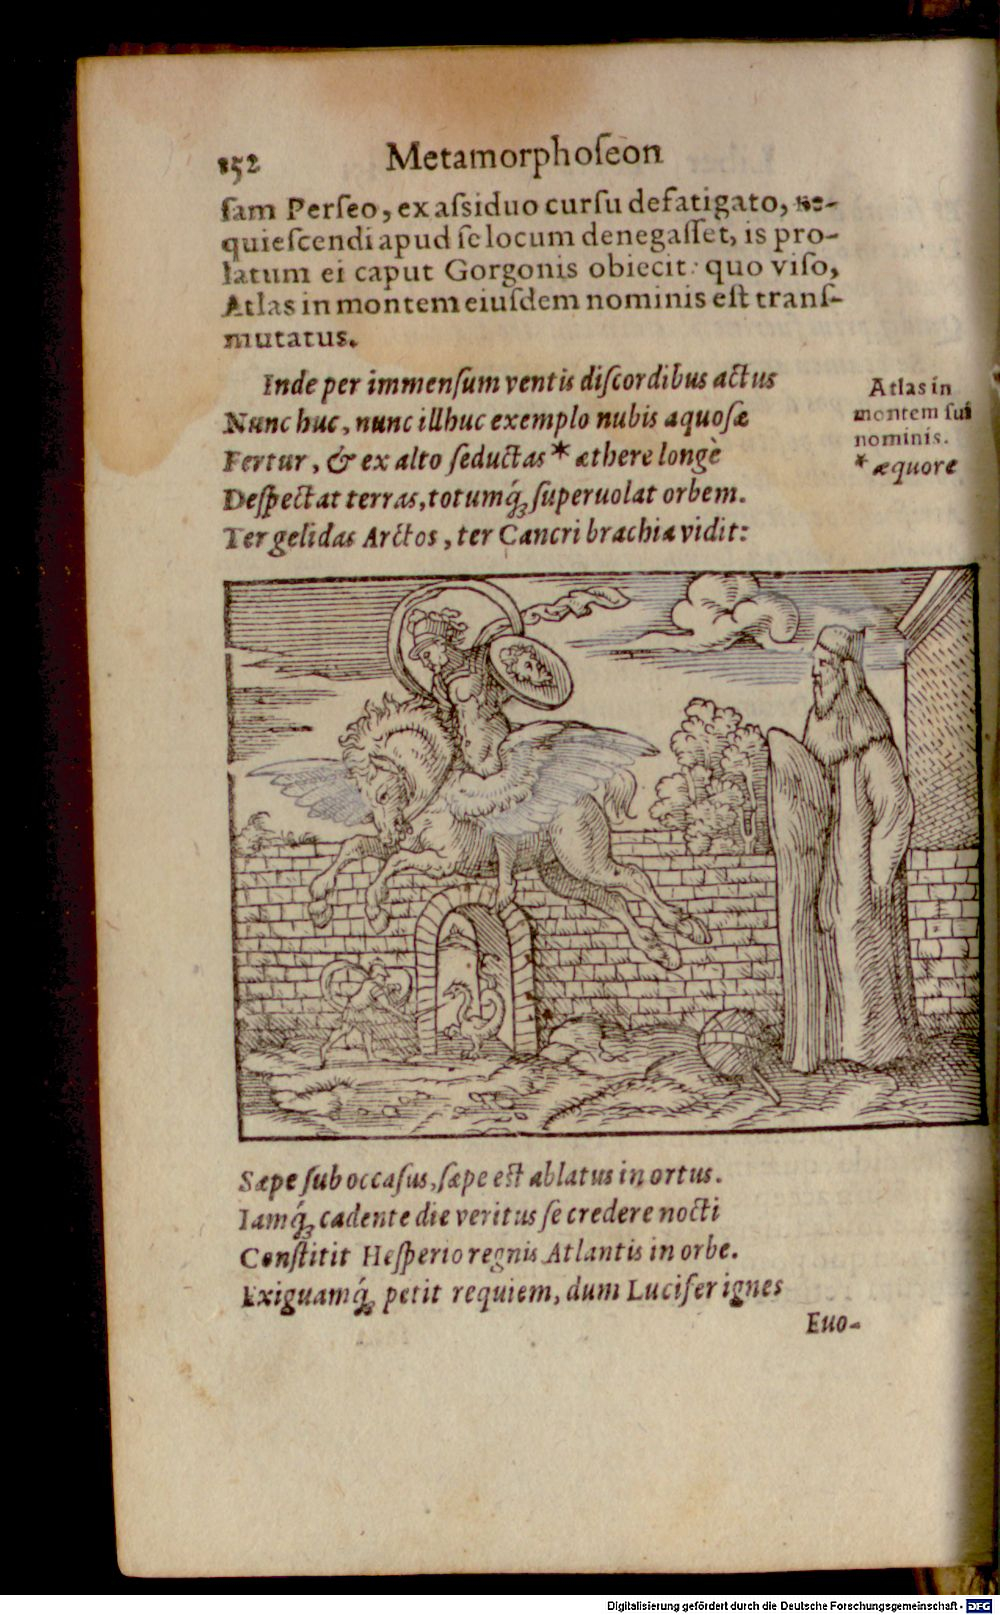 152 Metamorphoſeon
ſam Perſeo, ex aſsiduo curſu defatigato, re-
quieſcendi apud ſe locum denegaſſet, is pro-
latum ei caput Gorgonis obiecit: quo viſo,
Atlas in montem eiuſdem nominis eſt tranſ-
mutatus.
Inde per immenſum ventis diſcordibus actus
Nunc huc, nunc illhuc exemplo nubis aquoſæ
Fertur, & ex alto ſeductas * æthere longè
Deſpectat terras, totumq́ꝫ ſuperuolat orbem.
Ter gelidas Arctos, ter Cancri brachia vidit:
Atlas in
montem ſui
nominis.
* æquore
Sæpe ſub occaſus, ſæpe eſt ablatus in ortus.
Iamq́ꝫ cadente die veritus ſe credere nocti
Conſtitit Heſperio regnis Atlantis in orbe.
Exiguamq́ꝫ petit requiem, dum Lucifer ignes
Euo-
Digitalisierung gefördert durch die Deutsche Forschungsgemeinschaft - DFG